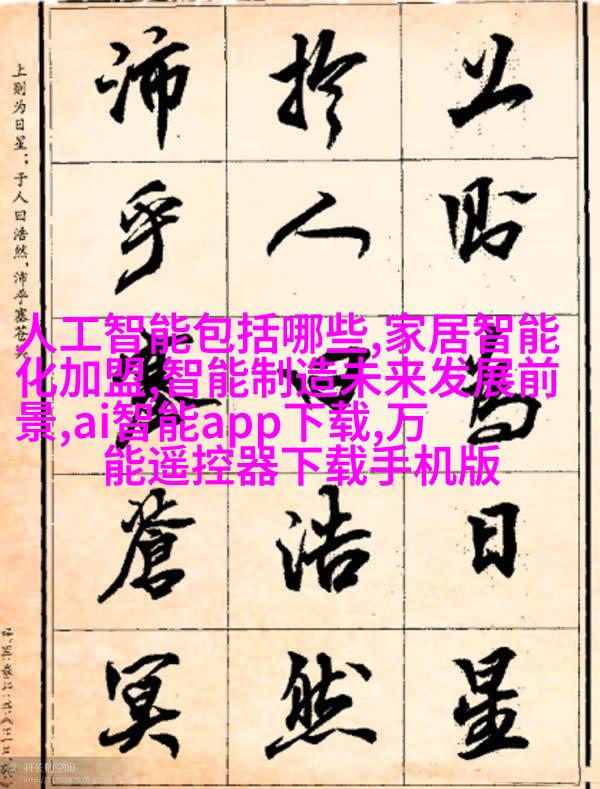 上則為日星
於人曰浩然
沛乎塞蒼冥
上则为日星；于人曰浩然，沛乎塞苍冥
人工智能包括哪些,家居智能
化加盟,智能制造未来发展前
景,ai智能app下载,万
能遥控器下载手机版
科长的空间